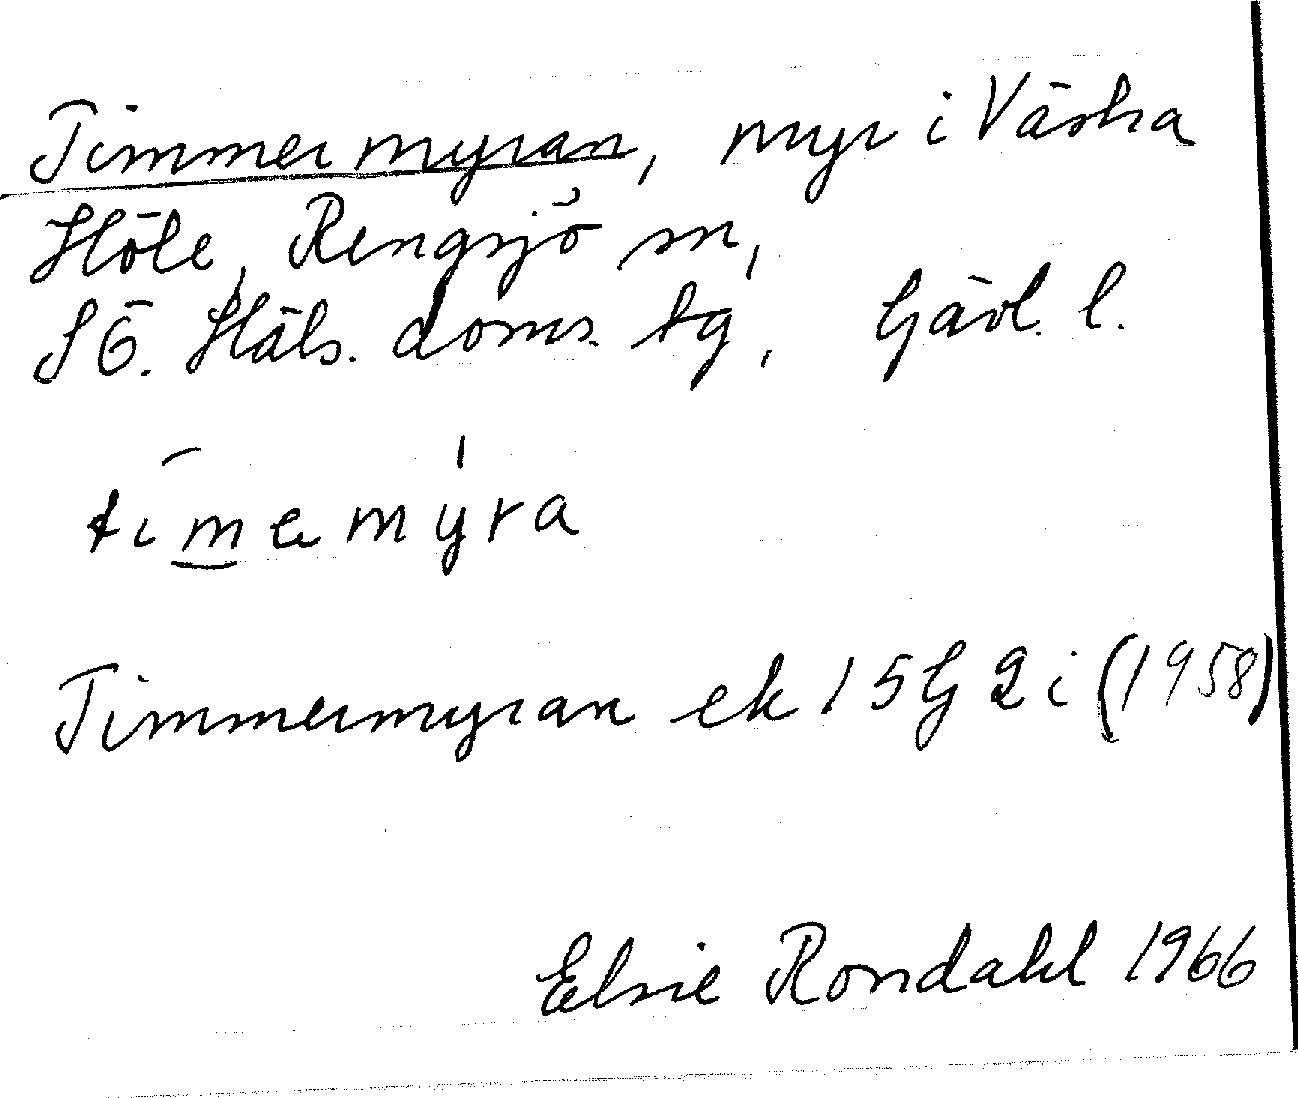 Timmermyran, myr i Västra
Höle, Rengsjö sn,
SÖ. Häls. doms. tg, Gävl. l.
timemyra
Timmermyran ek 15G 2i (1958)
Elsie Rondahl 1966